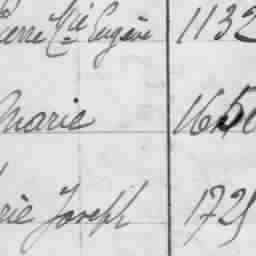 Pierre Cie Eugène 1132
Marie 1650
rie Joseph 1725